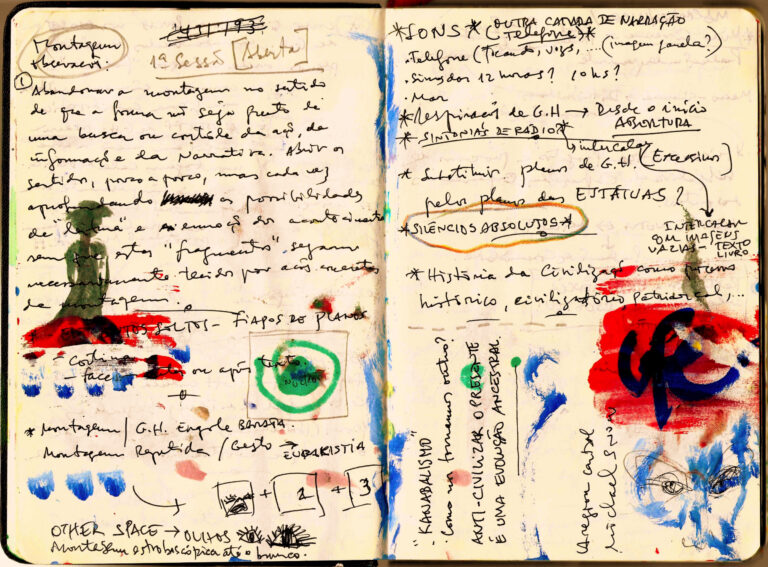 Montagem
observações.
1ª Sessão [Aberta]
① Abandonar a montagem no sentido
de que a forma não seja fruto de
uma busca ou controle da ação, da
informação e da Narrativa. Abrir o
sentido, pouco a pouco, mas cada vez
aprofundando as possibilidades
de "leitura" e
sem que estes "fragmentos" sejam
necessariamente tecidos por
de montagem.
SOLTOS - FIAPOS DE PLANOS
- Cortina
- face
ou após texto.
NUCLEO
* Montagem / G.H. Engole BARATA.
Montagem Repetida / Gesto → EUKARISTIA
+ 2 + 3
OTHER SPACE → OLHOS
Montagem estroboscópica até o branco.
*SONS* (OUTRA CAMADA DE NARRAÇÃO
(Telefone)*
· Telefone (Tocando, voz, ... (imagem janela?)
· Sinos das 12 horas? 10hs?
· Mar
* Respiração de G.H → Desde o início
ABERTURA
* SINTONIAS DE RADIO*
intercalar
* Substituir planos de G.H. (Excessivos)
pelos planos das ESTÁTUAS?
*SILÊNCIOS ABSOLUTOS*
INTERCALAR
COM IMAGENS
VAZIAS - TEXTO
LIVRO
* História da Civilização como
histórico, civilizatório, patriarcal, ...
"KANABALISMO"
Como nos tornamos outro?
ANTI-CIVILIZAR O PRESENTE
É UMA EVOLUÇÃO ANCESTRAL.
A region central
Michael Snow